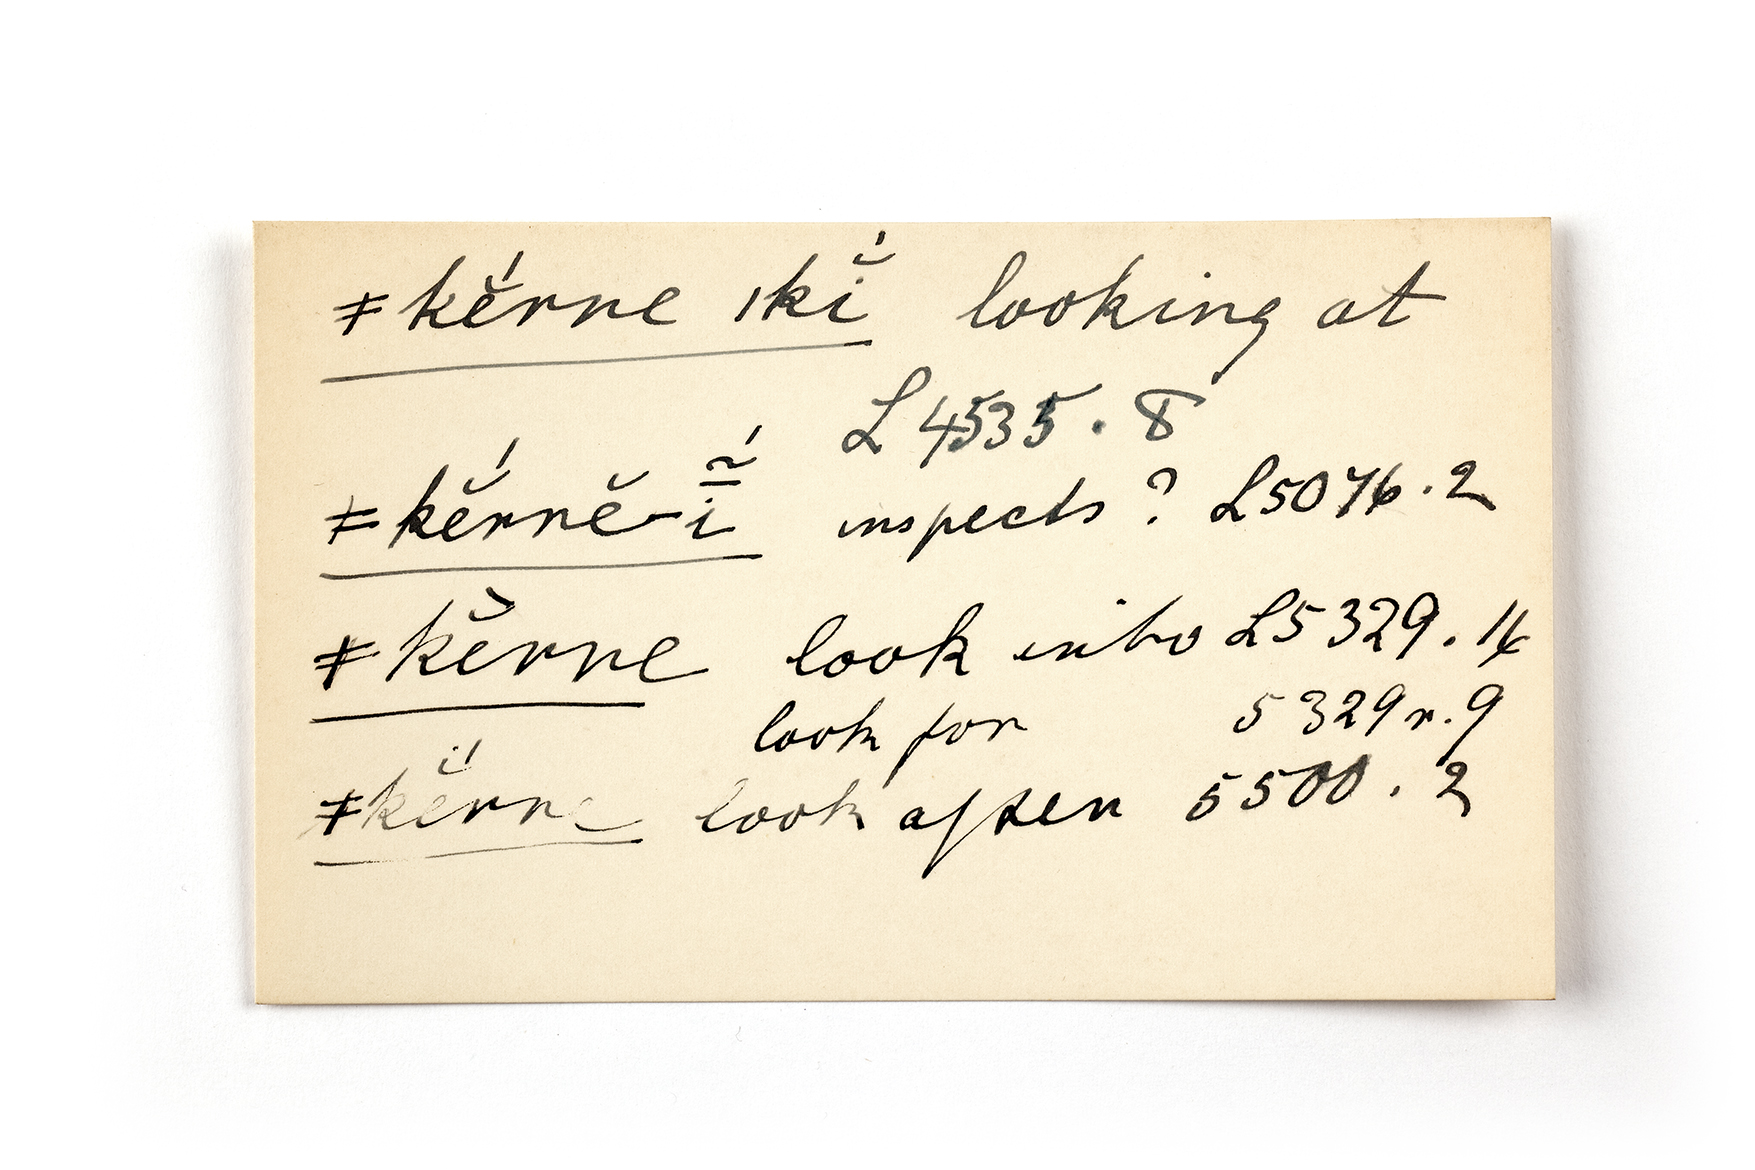 ǂkĕ́rne ıkĭ́ looking at
L 4535 . 8
ǂkĕ́rnĕ-ḭ̄̆́ inspects ? L5076 . 2
ǂkĕ̀rne look into L5329 . 16
look for 5329 r. 9
ǂkĕ́rne look after 5500 . 2